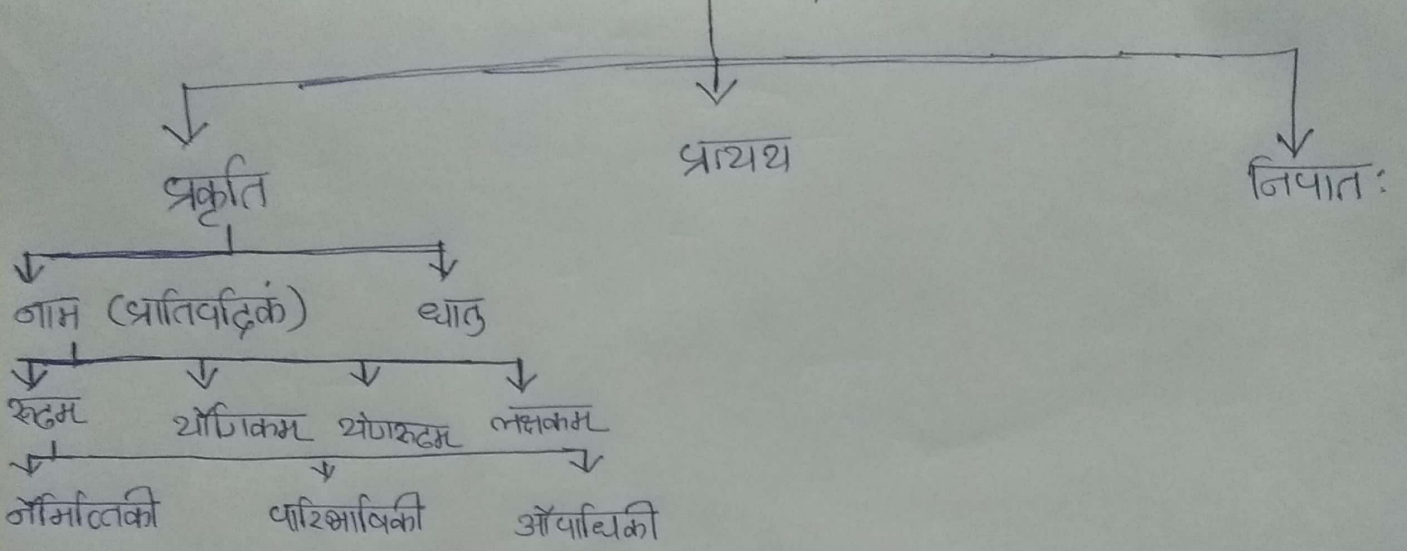 प्रकृति प्रायय निपातः
नाम (प्रातिपदिकं) धातु
रूढम यौगिकम योगरूढम लक्षकम
नैमित्तिकी पारिभाषिकी औपाधिकी